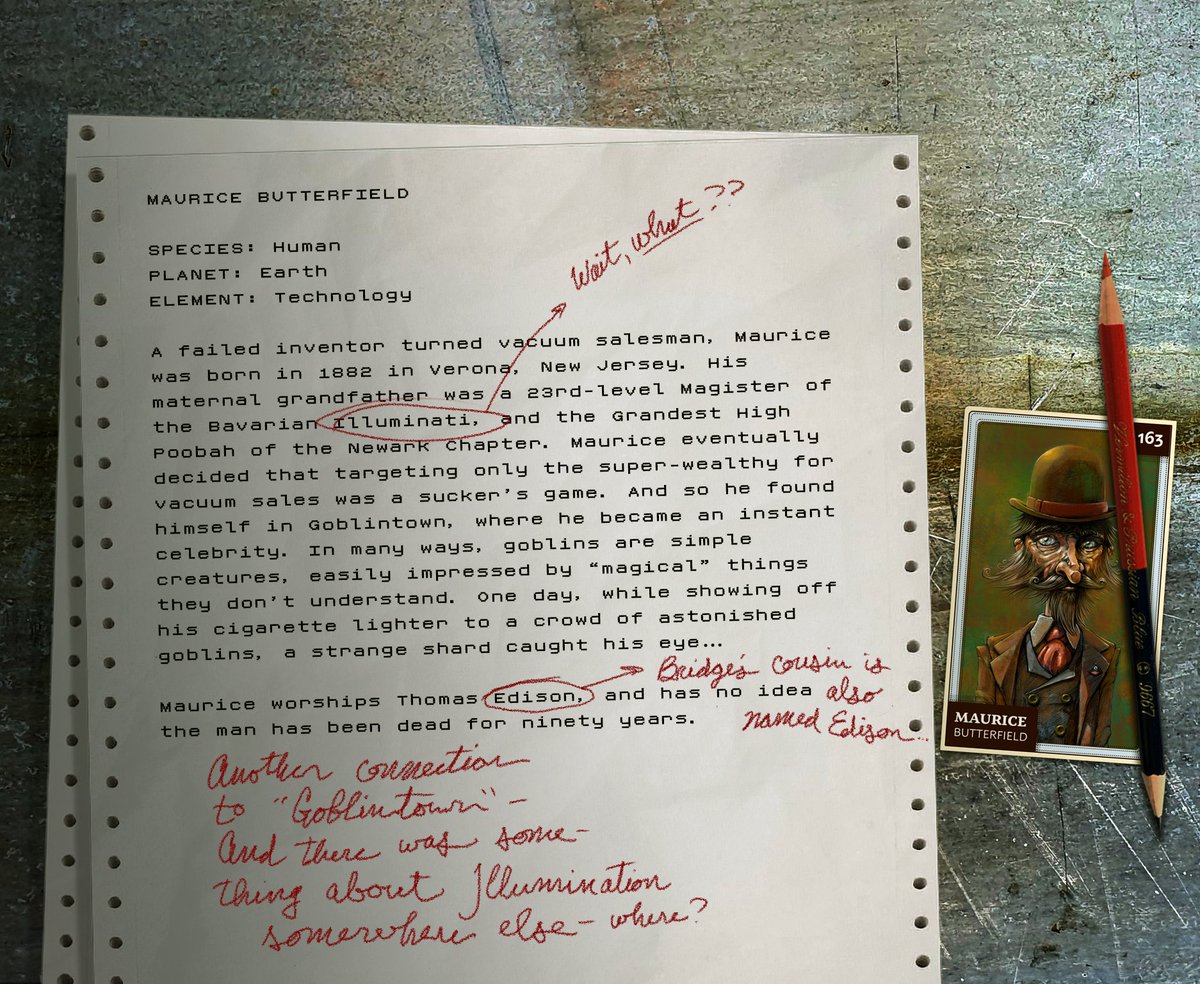 MAURICE BUTTERFIELD
SPECIES: Human
PLANET: Earth
ELEMENT: Technology
A failed inventor turned vacuum salesman, Maurice
was born in 1882 in Verona, New Jersey. His
maternal grandfather was a 23rd-level Magister of
the Bavarian Illuminati, and the Grandest High
Poobah of the Newark Chapter. Maurice eventually
decided that targeting only the super-wealthy for
vacuum sales was a sucker's game. And so he found
himself in Goblintown, where he became an instant
celebrity. In many ways, goblins are simple
creatures, easily impressed by “magical” things
they don't understand. One day, while showing off
his cigarette lighter to a crowd of astonished
goblins, a strange shard caught his eye...
Maurice worships Thomas Edison, and has no idea
the man has been dead for ninety years.
Wait, what??
Bridge's cousin is
also
named Edison..
Another connection
to "Goblintown"-
And there was some-
thing about Illumination
somewhere else - where?
163
MAURICE
BUTTERFIELD
Blue